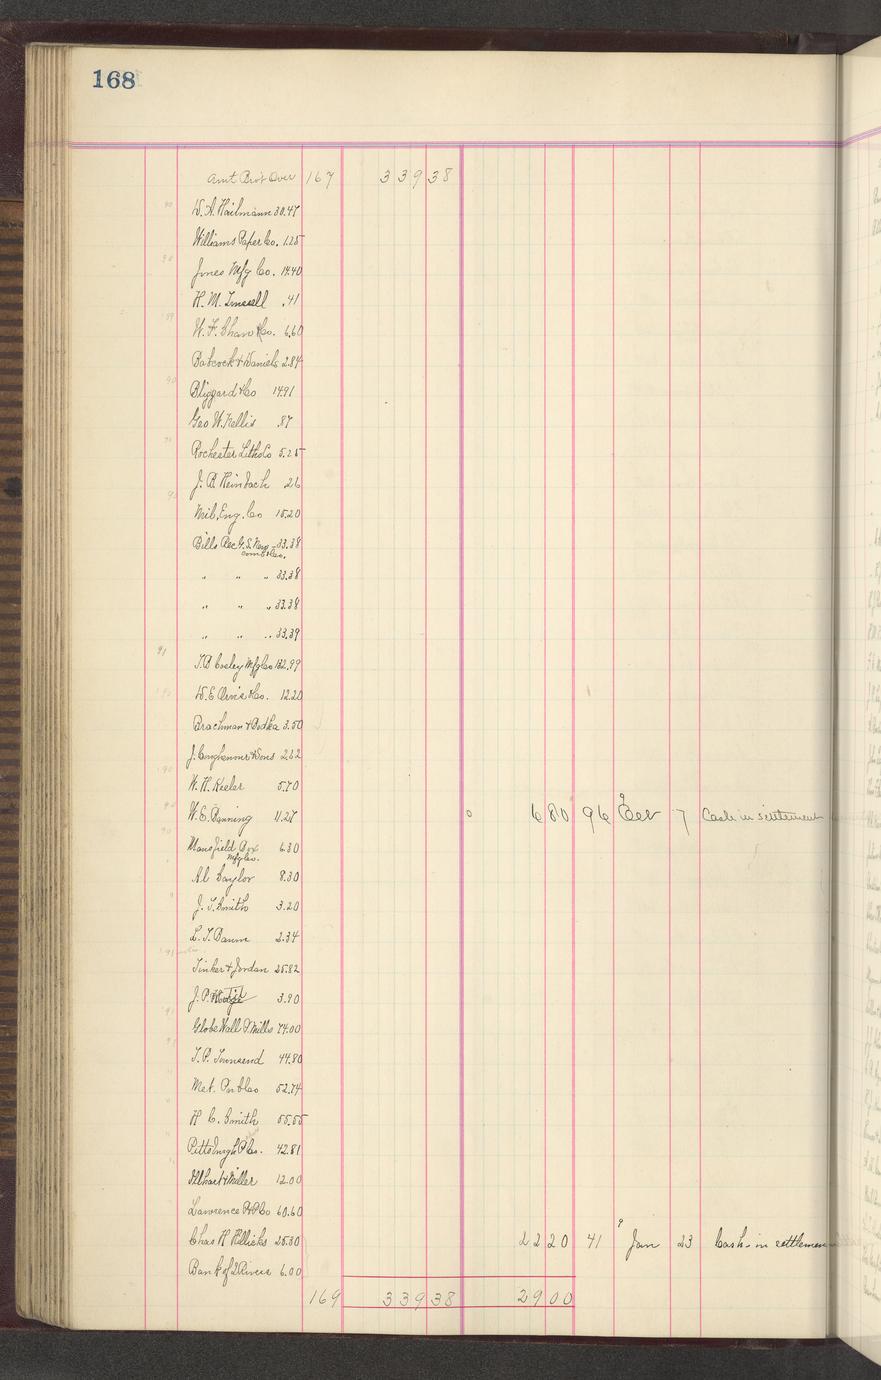 168
Amt Bro't Over 167 339 38
W. A. Hailmann 30.47
Williams Paper Co. 1.25
Jones Mfg Co. 14.40
H. M. .41
W. F. Shaw & Co. 6.60
Babcock & Daniels 2.84
Blizzard & Co 14.91
Geo W. Kellis .87
Rochester Litho Co 5.25
J. B. Heimbach 26
Mil. Eng. Co 15.20
Bills Rec G. S. New- 33.38
com & Co.
" " " 33.38
" " " 33.38
" " " 33.39
91
T. B. Mfg Co
W. E. & Co. 12.20
Brachman & 3.50
J. & Sons 2.62
W. H. Keeler 5.70
W. E. Banning 11.27 0 6 80 96 7 Cash in settlement
Mansfield Box 6.30
Mfg Co.
Al Saylor 8.30
J. T. Smith 3.20
L. T. Baum 2.34
Tinker & Jordan 25.82
J. P. 3.90
Globe Wall P. Mills 74.00
T. P. Townsend 44.80
Met. Pub Co 52.74
H C. Smith 55.55
Pittsburgh P Co. 42.81
& Miller 12.00
Lawrence Co 60.60
Chas H 25.30 22 20 41 9 Jan 23 Cash in settlemen
Bank of 2 Rivers 6.00
169 339 38 29 00